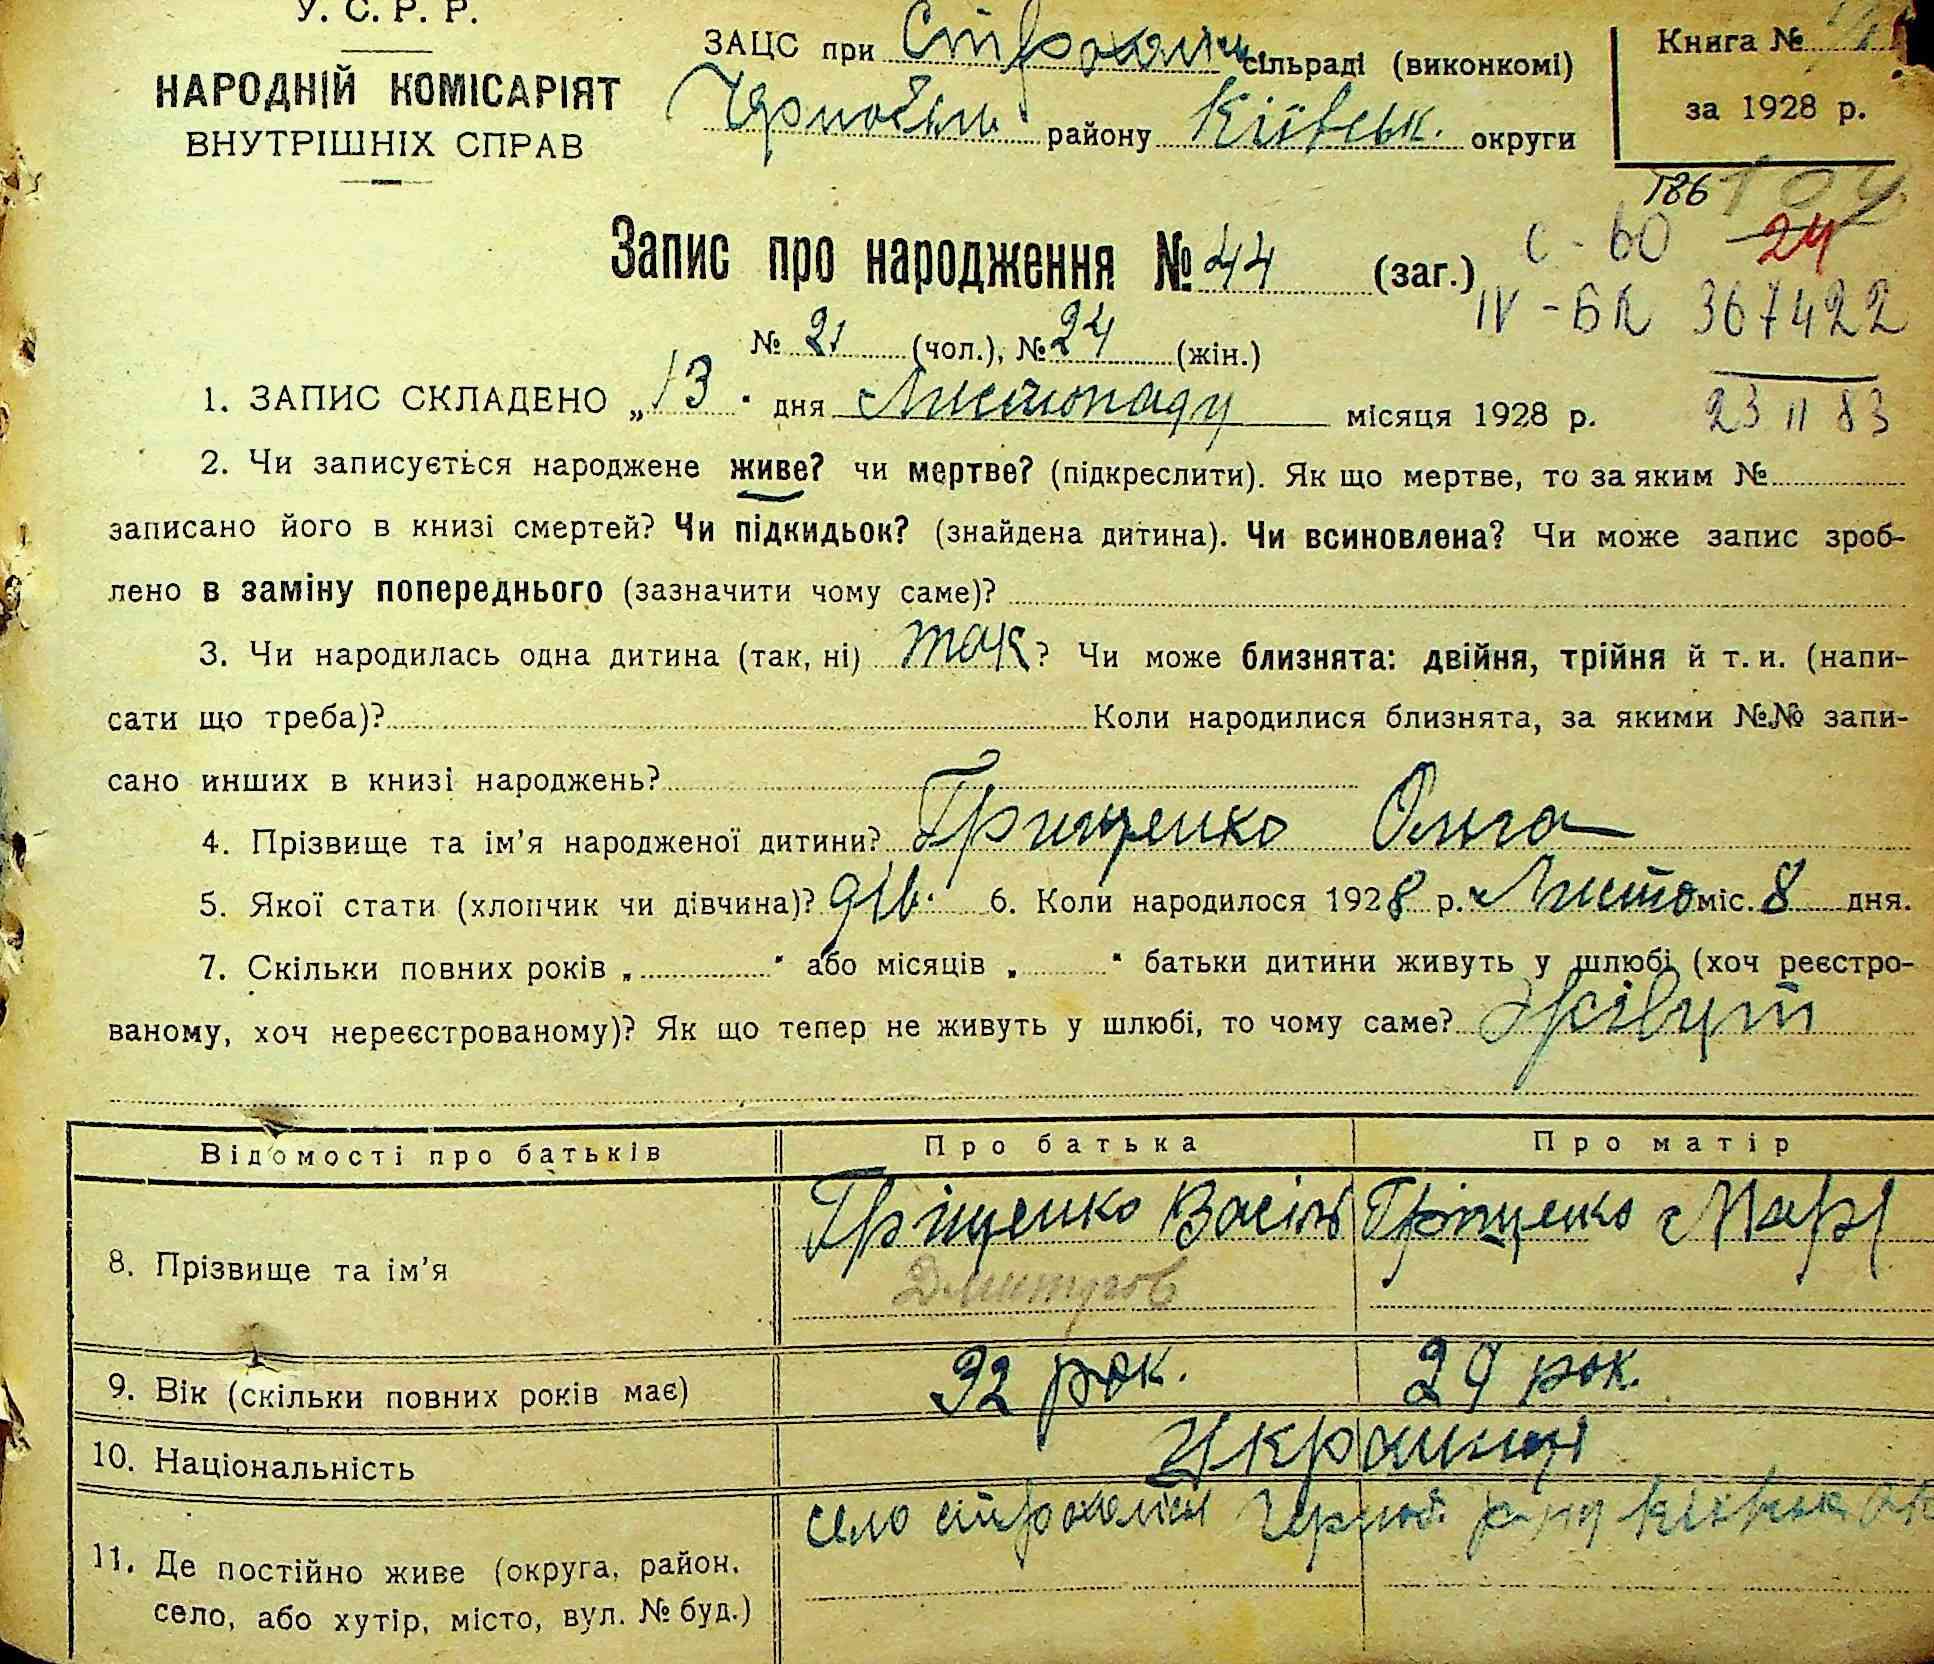 У. С. Р. Р.
НАРОДНІЙ КОМІСАРІЯТ
ВНУТРІШНІХ СПРАВ
ЗАЦС при Страхоліськ сільраді (виконкомі)
Чернобильс району Київськ. округи
Книга №
за 1928 р.
186 104
Запис про народження № 44 (заг.)
С - 60 24
IV - БК 367422
№ 21 (чол.), № 24 (жін.)
1. ЗАПИС СКЛАДЕНО „13" дня Листопаду місяця 1928 р.
23 II 83
2. Чи записується народжене живе? чи мертве? (підкреслити). Як що мертве, то за яким №
записано його в книзі смертей? Чи підкидьок? (знайдена дитина). Чи всиновлена? Чи може запис зроб-
лено в заміну попереднього (зазначити чому саме)?
3. Чи народилась одна дитина (так, ні) так? Чи може близнята: двійня, трійня й т. и. (напи-
сати що треба)? Коли народилися близнята, за якими №№ запи-
сано инших в книзі народжень?
4. Прізвище та ім'я народженої дитини? Грищенко Ольга
5. Якої стати (хлопчик чи дівчина)? дів. 6. Коли народилося 1928 р. Листо міс. 8 дня.
7. Скільки повних років „ " або місяців „ " батьки дитини живуть у шлюбі (хоч реєстро-
ваному, хоч нереєстрованому)? Як що тепер не живуть у шлюбі, то чому саме? Живут
Відомості про батьків Про батька Про матір
8. Прізвище та ім'я Гріщенко Васіль Гріщенко Марі
Дмитров
9. Вік (скільки повних років має) 32 рок. 29 рок.
10. Національність Украинці
11. Де постійно живе (округа, район,
село, або хутір, місто, вул. № буд.)
село Черноб. р-ну Київськ